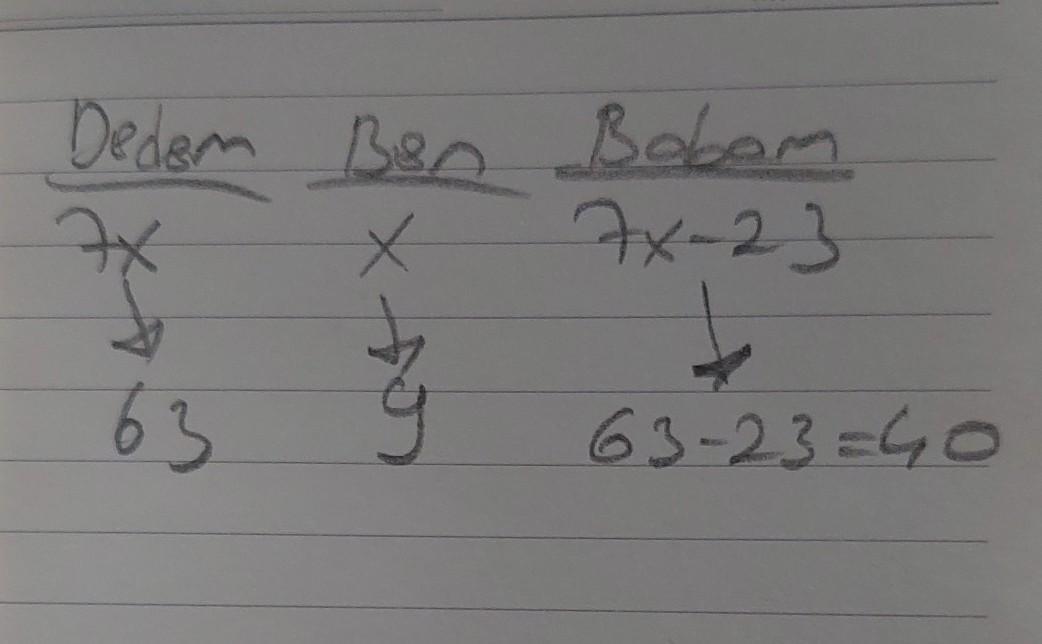 Dedem Ben Babam
7x x 7x-23
63 9 63-23=40